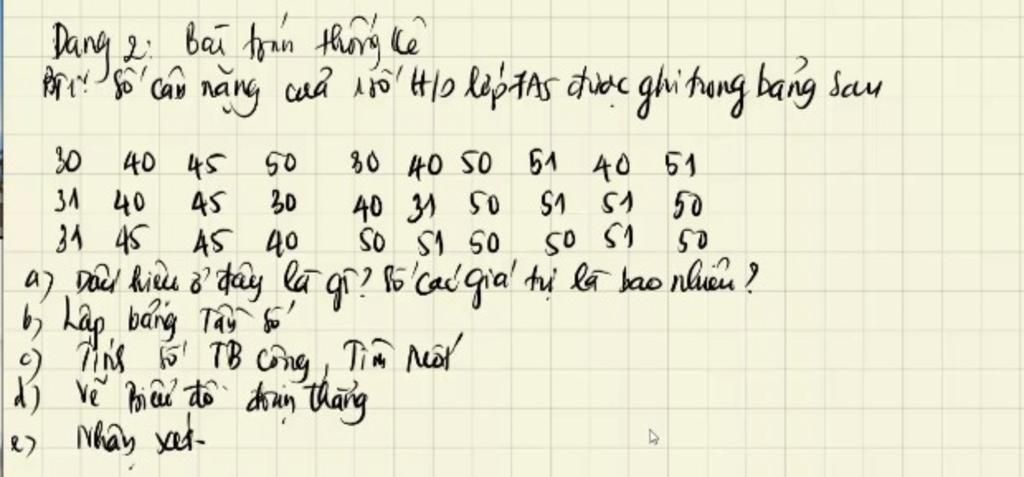 Dạng 2: Bài toán thống kê
Bài 1: Số cân nặng của 1 số H/S lớp 7A5 được ghi trong bảng sau
30 40 45 50 30 40 50 51 40 51
31 40 45 30 40 31 50 51 51 50
31 45 45 40 50 51 50 50 51 50
a) Dấu hiệu ở đây là gì? Số các giá trị là bao nhiêu?
b) Lập bảng Tần số
c) Tính số TB cộng, Tìm Mốt
d) Vẽ Biểu đồ đoạn thẳng
e) Nhận xét